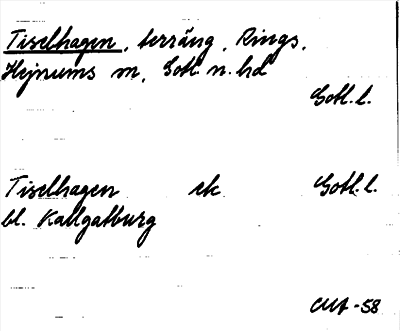 Tiselhagen, terräng, Rings,
Hejnums sn, Gotl n. hd
Gotl. l.
Tiselhagen ek Gotl. l.
bl. Kallgatburg
-58